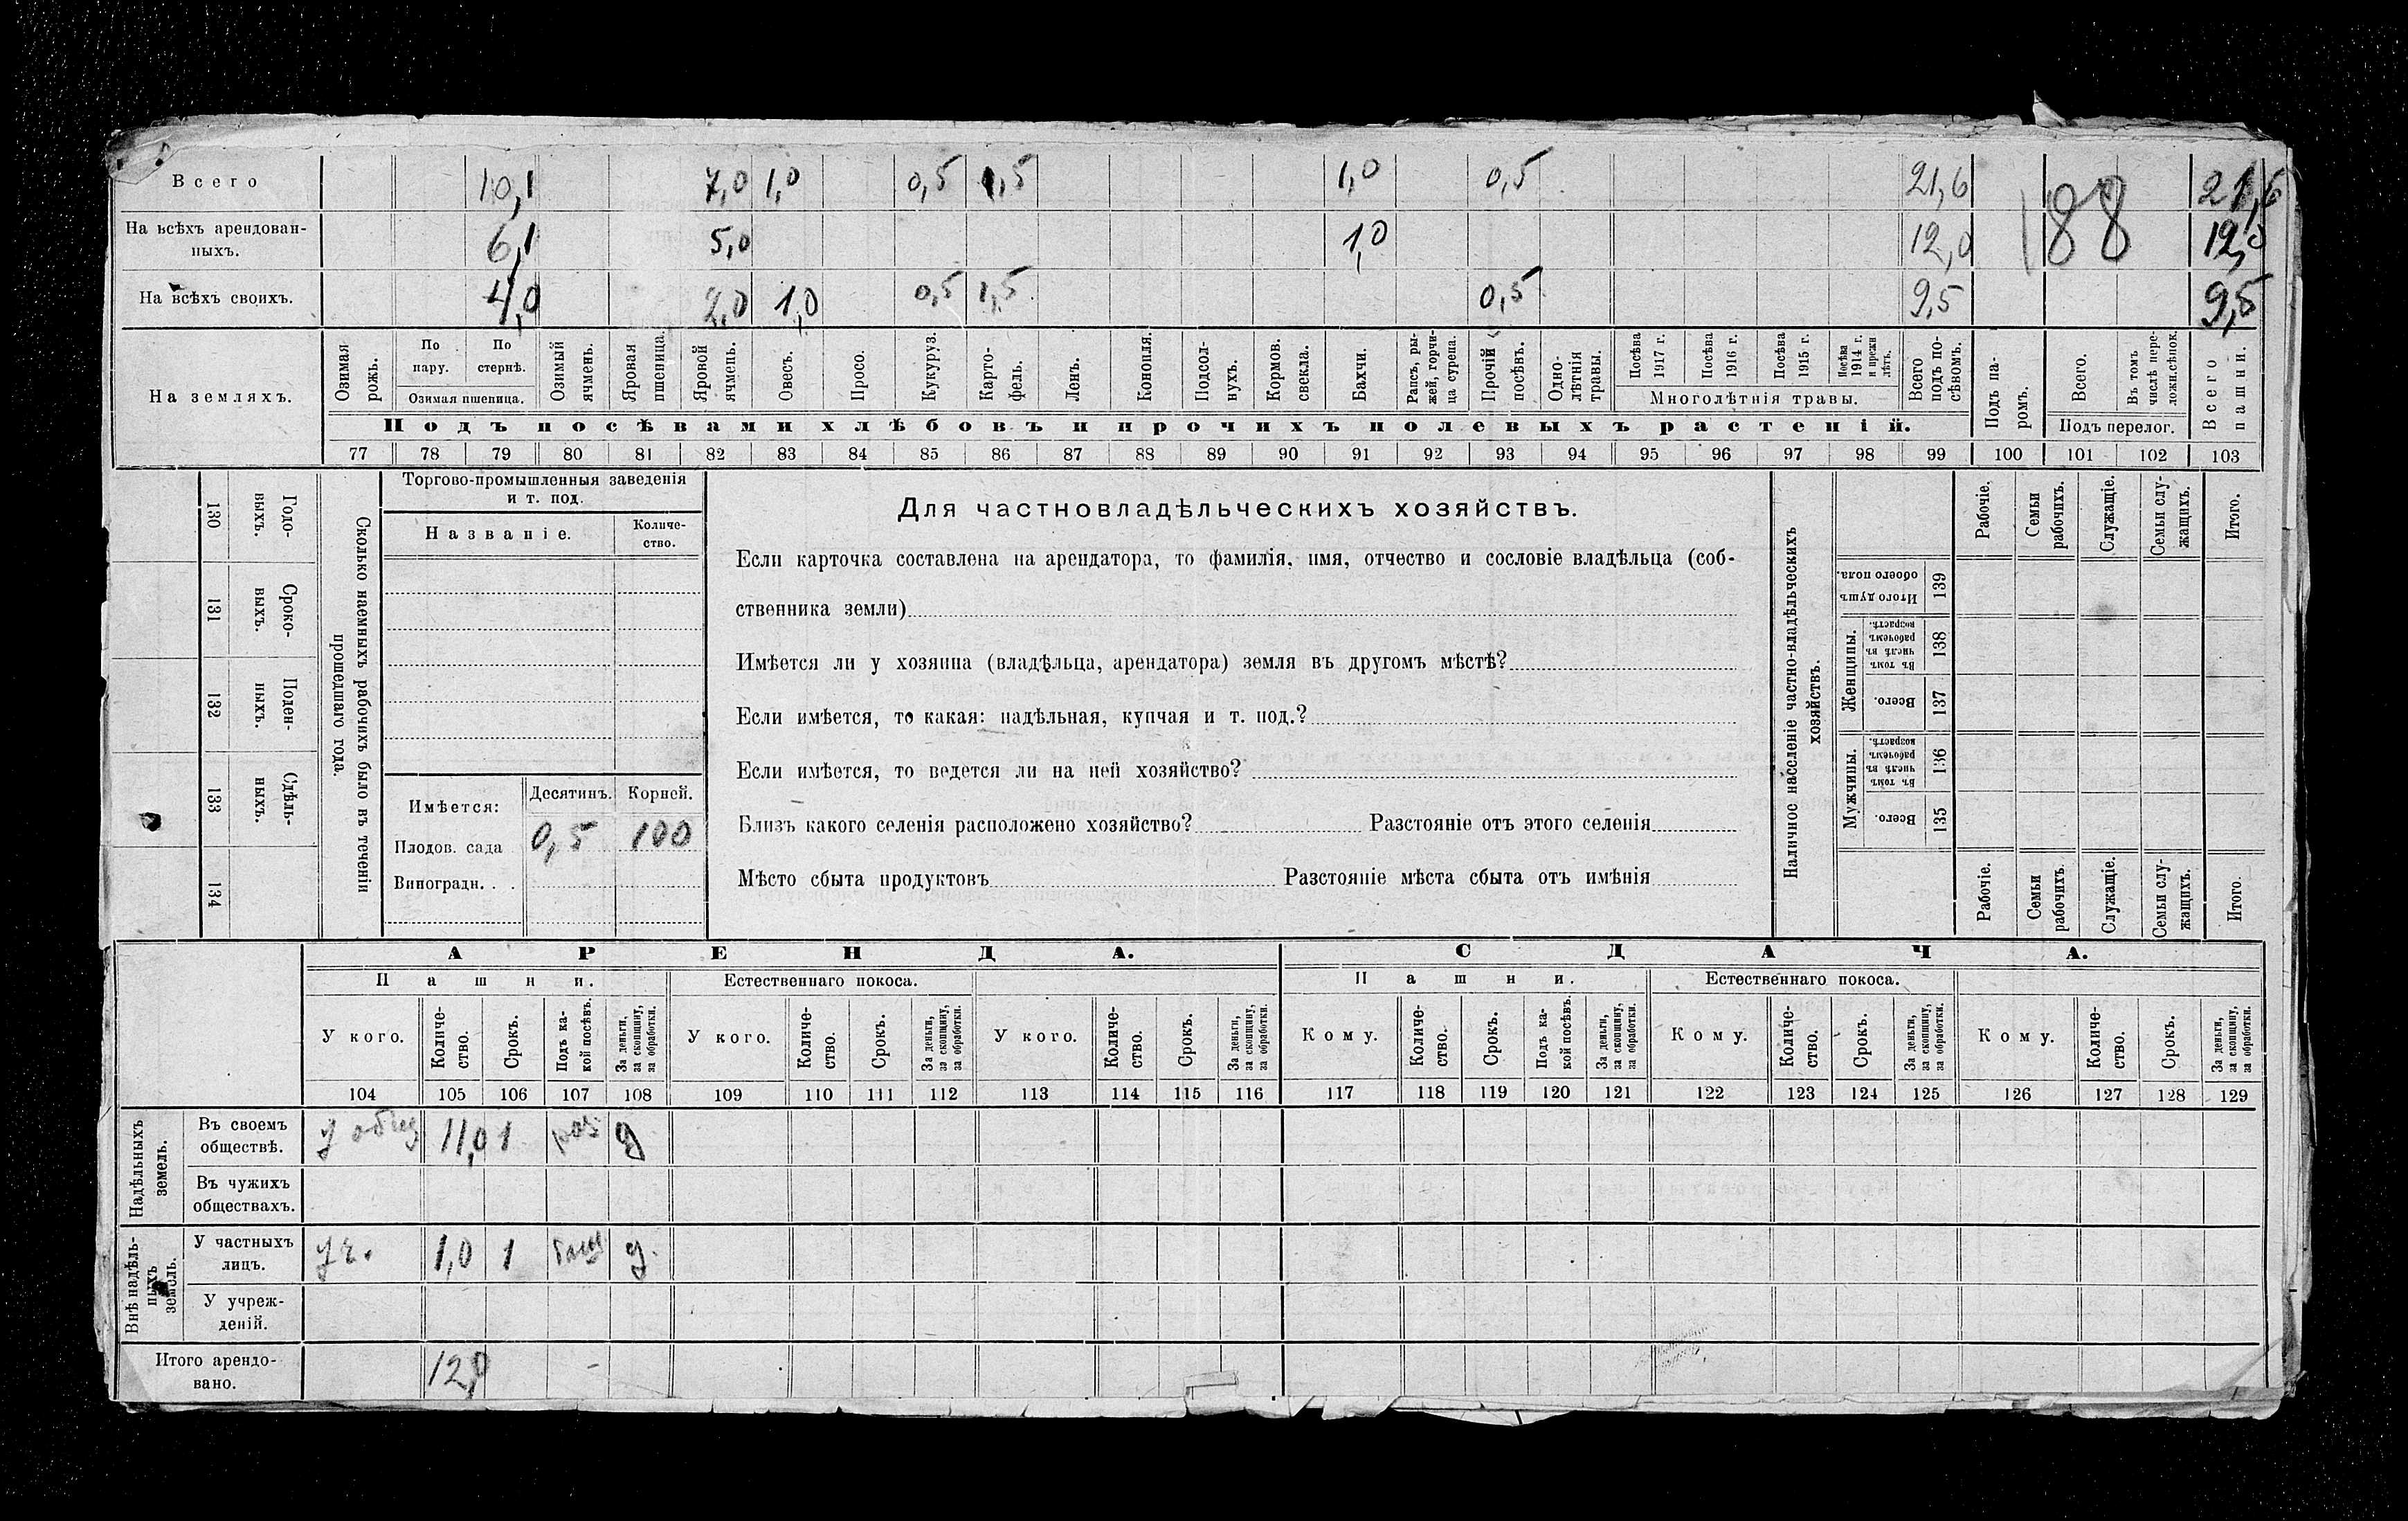 Всего 10,1 7,0 1,0 0,5 1,5 1,0 0,5 21,6 21,6
На всѣхъ арендован-
ныхъ. 6,1 5,0 1,0 12,0 188 12,0
На всѣхъ своихъ. 4,0 2,0 1,0 0,5 1,5 0,5 9,5 9,5
На земляхъ.
Озимая рожь.
По пару.
По стернѣ.
Озимая пшеница.
Озимый ячмень.
Яровая пшеница.
Яровой ячмень.
Овесъ.
Просо.
Кукуруз.
Карто-фель.
Ленъ.
Конопля.
Подсол-нухъ.
Кормов. свекла.
Бахчи.
Рапсъ, ры-жей, горчи-ца сурепа.
Прочій посѣвъ.
Одно-лѣтнія травы.
Посѣва 1917 г.
Посѣва 1916 г.
Посѣва 1915 г.
Посѣва 1914 г. и прежн лѣтъ.
Многолѣтнія травы.
Всего подъ по-сѣвомъ.
Подъ па-ромъ.
Всего.
Въ томъ числѣ пере-ложн.сѣнок.
Подъ перелог.
Всего пашни.
Подъ посѣвами хлѣбовъ и прочихъ полевыхъ растеній.
77 78 79 80 81 82 83 84 85 86 87 88 89 90 91 92 93 94 95 96 97 98 99 100 101 102 103
130 Годо-выхъ.
131 Сроко-выхъ.
132 Поден-ныхъ.
133 Сдѣль-ныхъ.
134
Сколько наемныхъ рабочихъ было въ теченіи
прошедшаго года.
Торгово-промышленныя заведенія
и т. под.
Названіе.
Количе-
ство.
Имѣется: Десятинъ. Корней.
Плодов. сада 0,5 100
Виноградн. . .
Для частновладѣльческихъ хозяйствъ.
Если карточка составлена на арендатора, то фамилія, имя, отчество и сословіе владѣльца (соб-
ственника земли)
Имѣется ли у хозяина (владѣльца, арендатора) земля въ другомъ мѣстѣ?
Если имѣется, то какая: надѣльная, купчая и т. под.?
Если имѣется, то ведется ли на ней хозяйство?
Близъ какого селенія расположено хозяйство? Разстояніе отъ этого селенія
Мѣсто сбыта продуктовъ Разстояніе мѣста сбыта отъ имѣнія
Наличное населеніе частно-владѣльческихъ
хозяйствъ.
Рабочіе.
Семьи рабочихъ.
Служащіе.
Семьи слу-жащихъ.
Итого.
Итого душъ обоего пола. 139
Женщины.
Въ томъ числѣ въ рабочемъ возрастѣ. 138
Всего. 137
Мужчины.
Въ томъ числѣ въ рабочемъ возрастѣ. 136
Всего. 135
Рабочіе.
Семьи рабочихъ.
Служащіе.
Семьи слу-жащихъ.
Итого.
АРЕНДА. СДАЧА.
Пашни. Естественнаго покоса. Пашни. Естественнаго покоса.
У кого. Количе-ство. Срокъ. Подъ ка-кой посѣвъ. За деньги, за скопщину, за обработки.
У кого. Количе-ство. Срокъ. За деньги, за скопщину, за обработки.
У кого. Количе-ство. Срокъ. За деньги, за скопщину, за обработки.
Кому. Количе-ство. Срокъ. Подъ ка-кой посѣвъ. За деньги, за скопщину, за обработки.
Кому. Количе-ство. Срокъ. За деньги, за скопщину, за обработки.
Кому. Количе-ство. Срокъ. За деньги, за скопщину, за обработки.
104 105 106 107 108 109 110 111 112 113 114 115 116 117 118 119 120 121 122 123 124 125 126 127 128 129
Надѣльныхъ
земель.
Въ своемъ
обществѣ. у общ 11,0 1 д
Въ чужихъ
обществахъ.
Внѣ надѣль-
ныхъ
земель.
У частныхъ
лицъ. 1,0 1 д.
У учреж-
деній.
Итого арендо-
вано. 12,0 -